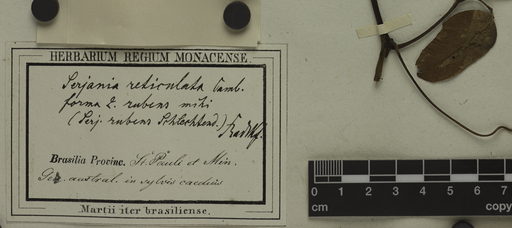 HERBARIUM REGIUM MONACENSE.
Serjania reticulata Camb.
forma 2. rubens mihi
(Serj. rubens Schlechtend.) Radlkf.
Brasilia Provinc. St. Pauli et Min.
austral. in sylvis caeduis
Martii iter brasiliense.
0 1 2 3 4 5 6 7
cm copy